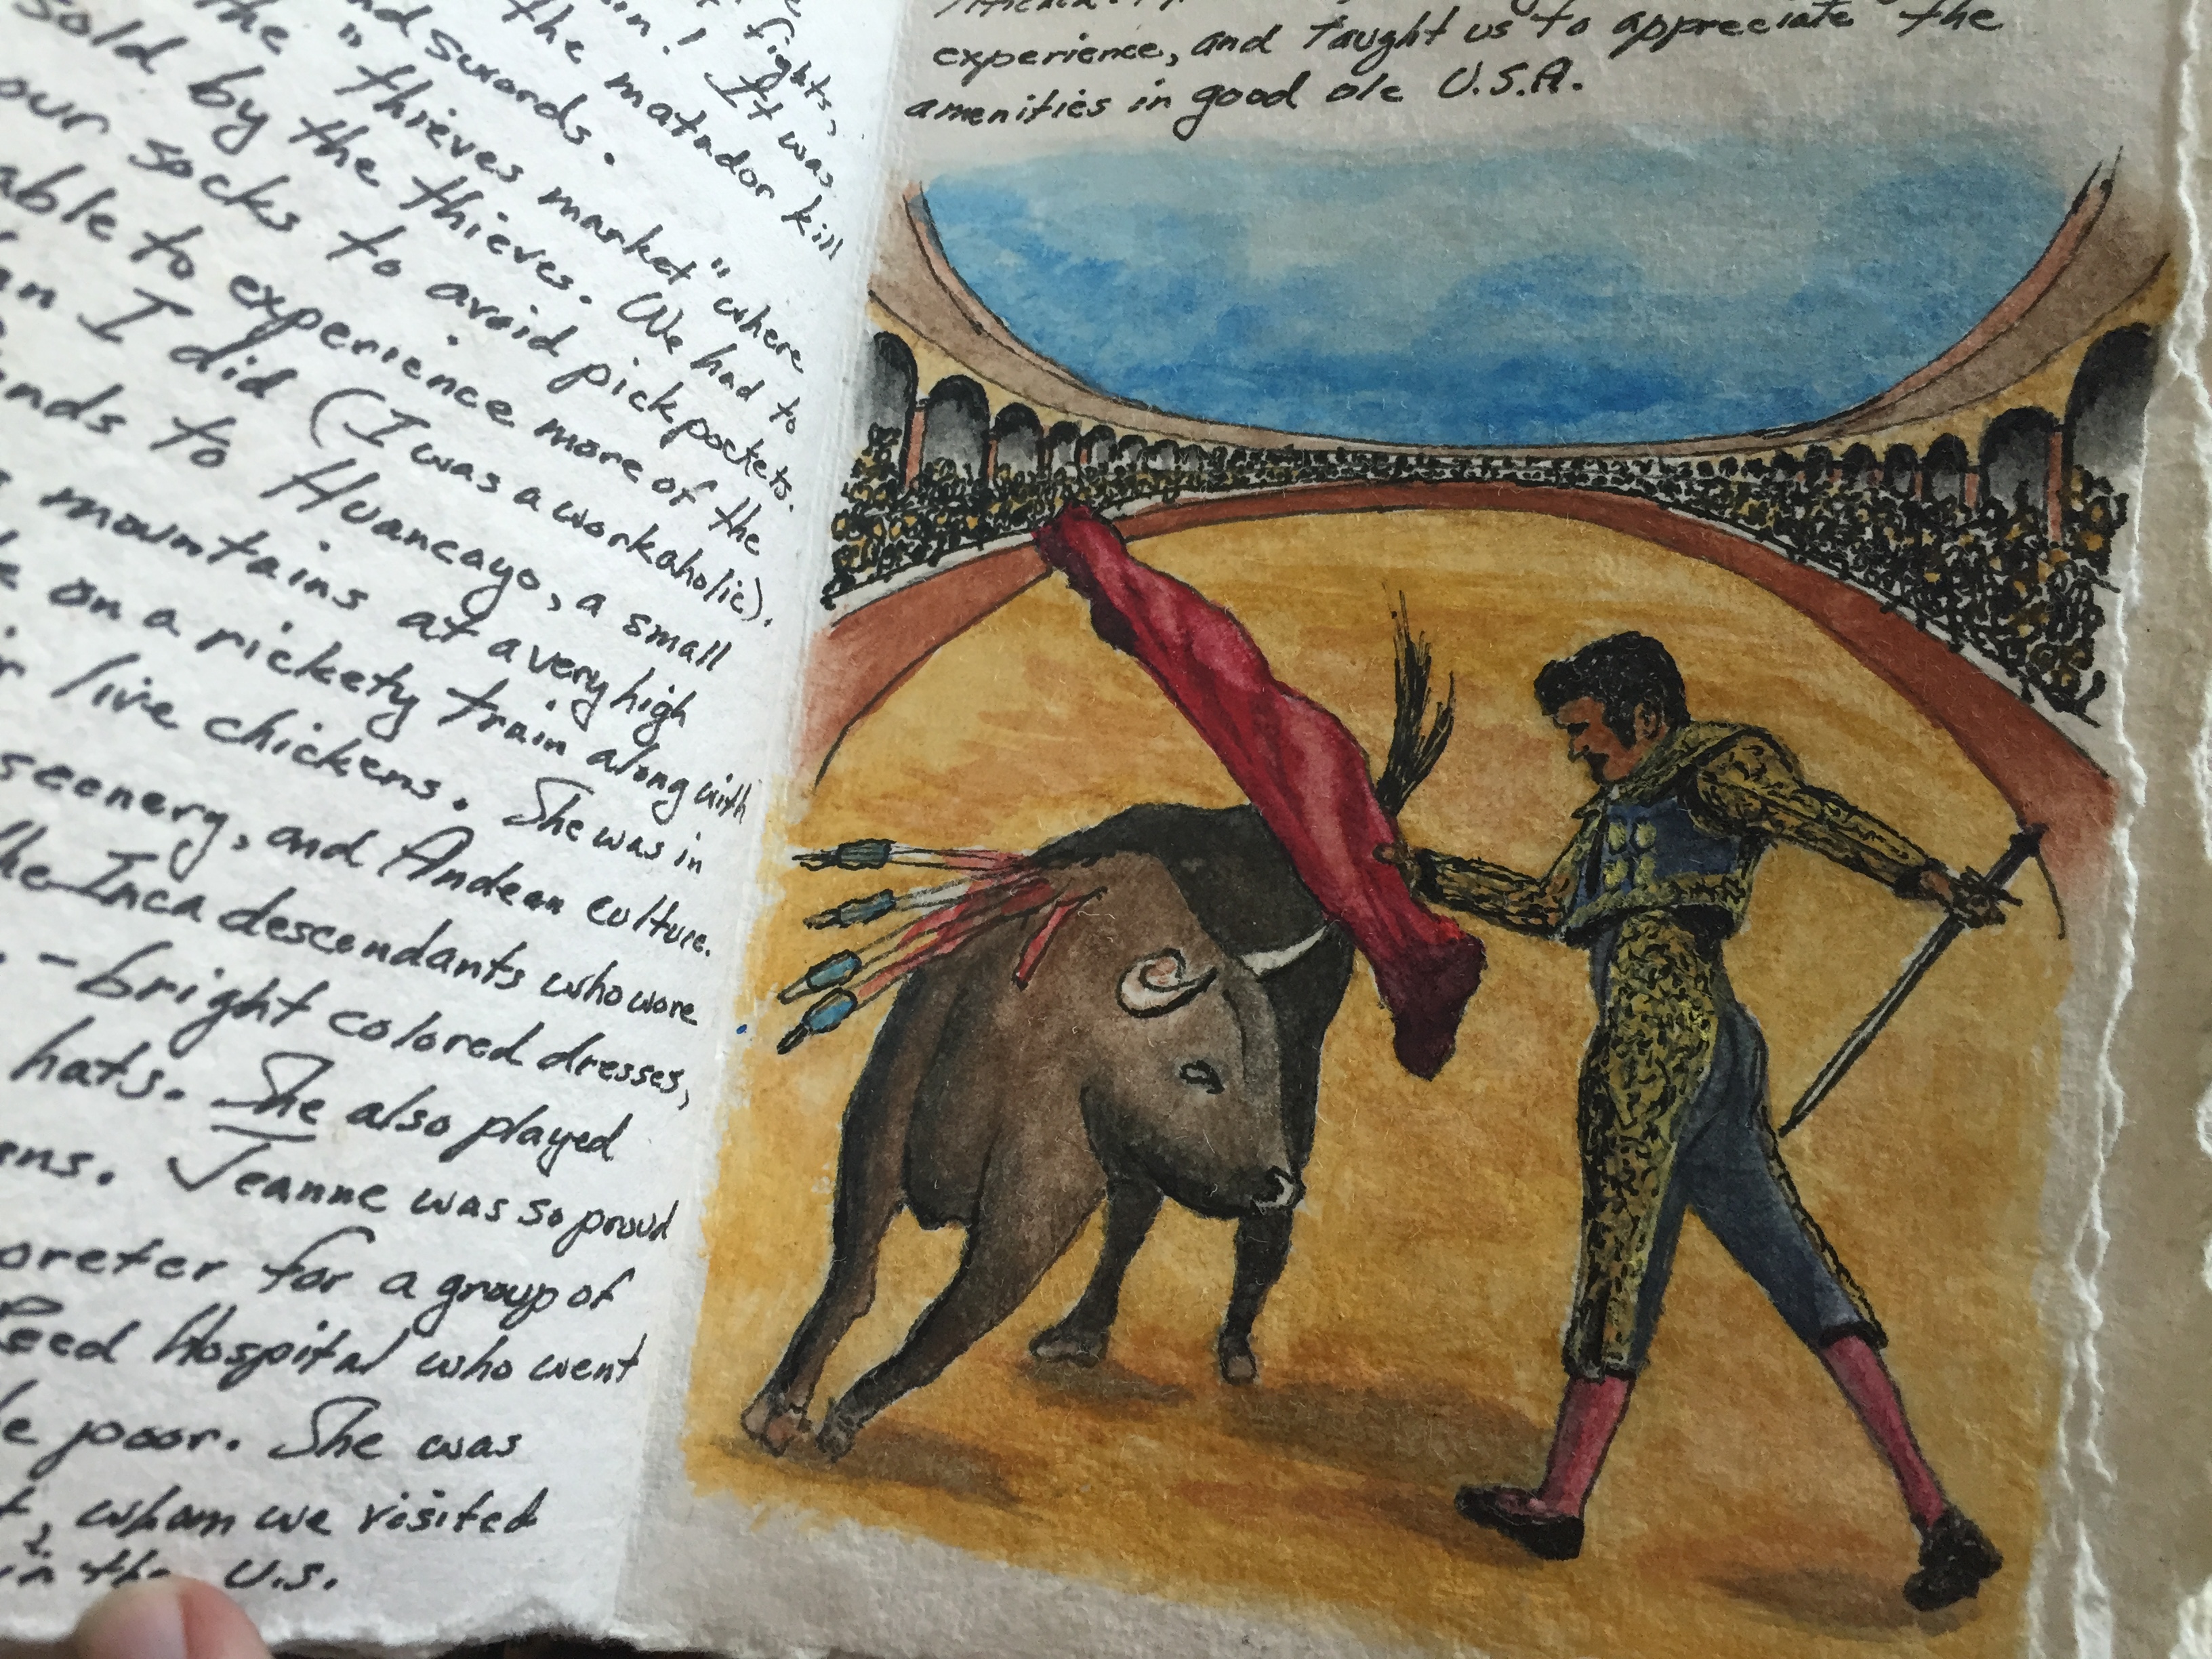 fights,
in! It was
the matador kill
and swords.
the "thieves market" where
sold by the thieves. We had to
our socks to avoid pickpockets.
able to experience more of the
than I did (I was a workaholic).
to Huancayo, a small
mountains at a very high
on a rickety train along with
live chickens. She was in
scenery, and Andean culture.
the Inca descendants who wore
- bright colored dresses,
hats. She also played
Jeanne was so proud
for a group of
Reed Hospital who went
poor. She was
whom we visited
in the U.S.
experience, and taught us to appreciate the
amenities in good ole U.S.A.